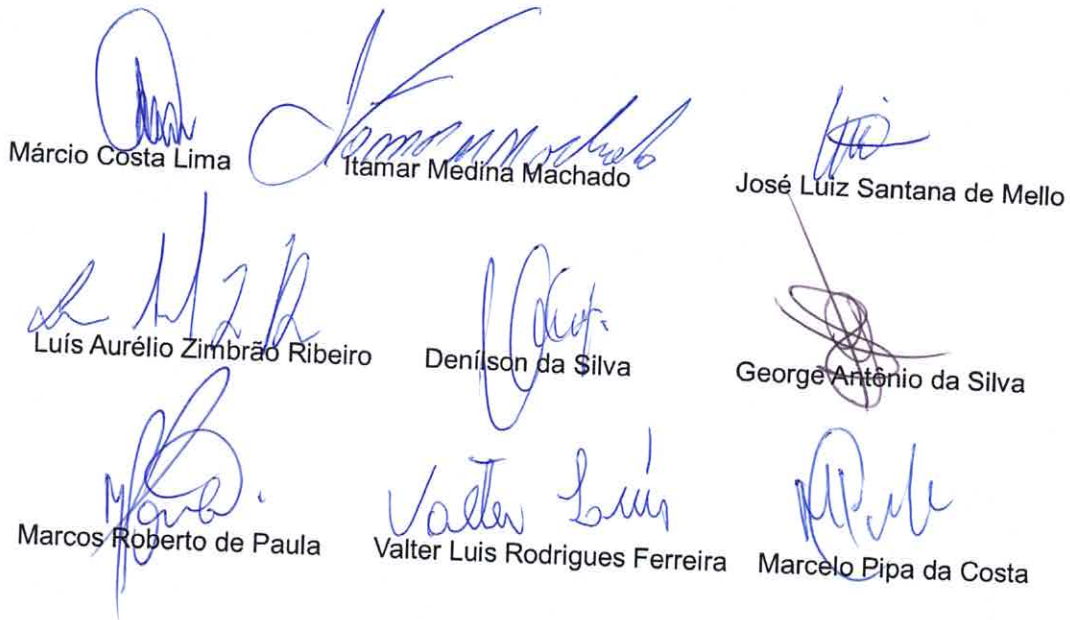 Márcio Costa Lima
Itamar Medina Machado
José Luiz Santana de Mello
Luís Aurélio Zimbrão Ribeiro
Denílson da Silva
George Antônio da Silva
Valter Luís
Marcos Roberto de Paula
Valter Luis Rodrigues Ferreira
Marcelo Pipa da Costa